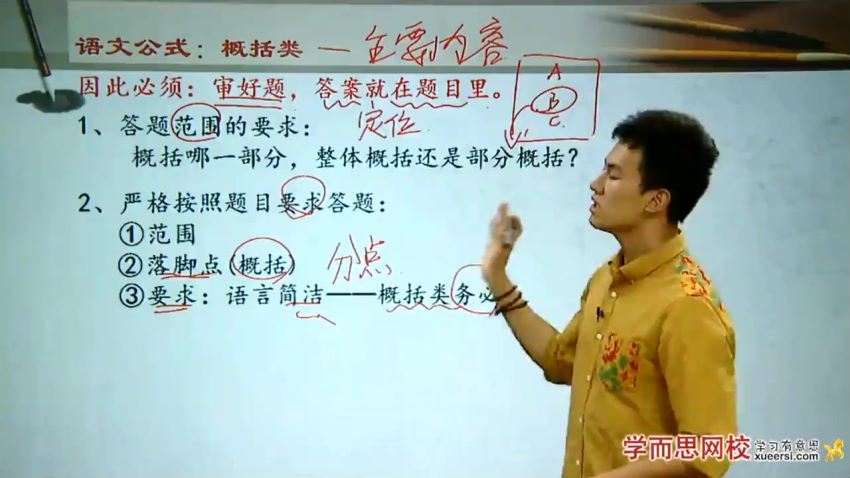 语文公式：概括类 — 主要内容
因此必须：审好题，答案就在题目里。
A
B
C
1、答题范围的要求： 定位
概括哪一部分，整体概括还是部分概括？
2、严格按照题目要求答题：
①范围
②落脚点(概括) 分点
③要求：语言简洁——概括类务必
学而思网校 学习有意思
xueersi.com